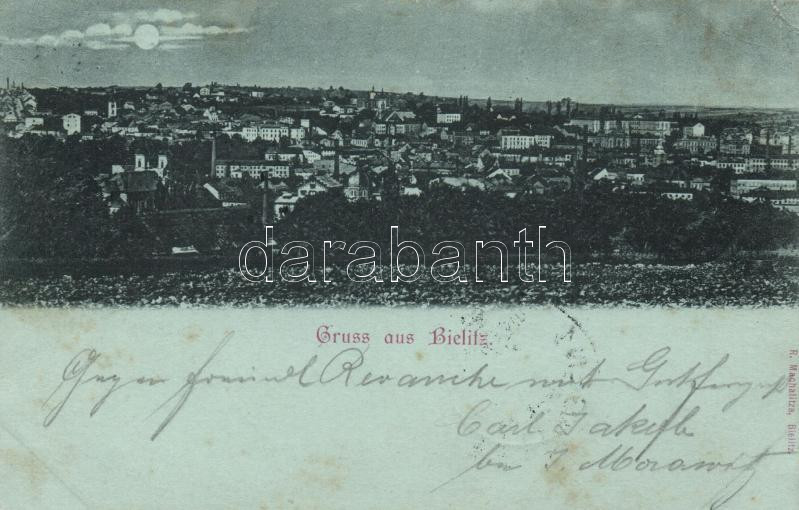 darabanth
Gruss aus Bielitz.
Gegen freundl Revanche mit
Carl Jakub
bei J. Morawitz
R. Machalitza, Bielitz